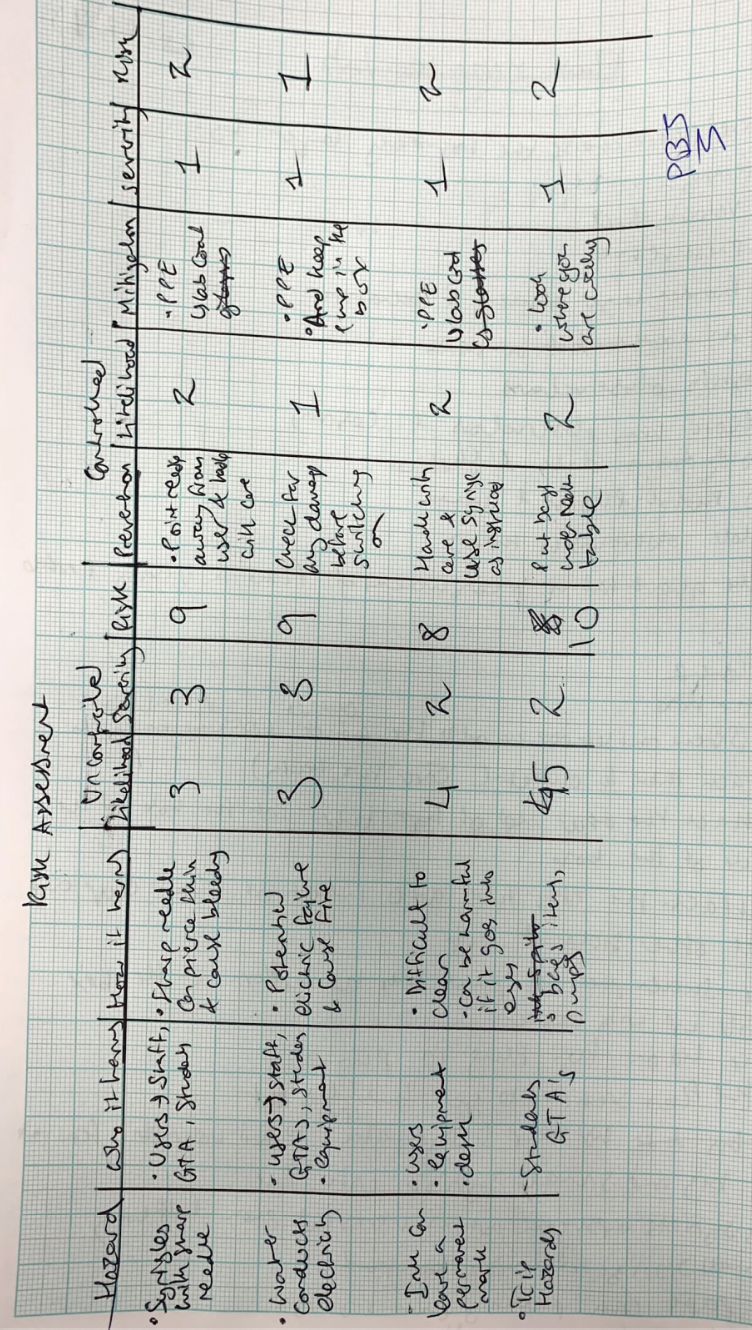 Risk Assessment
Uncontrolled
Controlled
Hazard
Who it harms
How it harms
Likelihood
Severity
Risk
Prevention
Likelihood
Mitigation
Severity
Risk
• Syringes
with sharp
needle
• Users → Staff,
GTA, Students
• Sharp needle
can pierce skin
& cause bleeding
3
3
9
• Point needle
away from
user & handle
with care
2
• PPE
↳ lab coat
glasses
1
2
• Water
conducts
electricity
• users → staff,
GTAs, students
• equipment
• Potential
electric failure
& cause fire
3
3
9
Check for
any damage
before
switching
on
1
• PPE
• And keep
pump in the
box
1
1
• Ink can
leave a
permanent
mark
• users
• equipment
• desk
• Difficult to
clean
• can be harmful
if it goes into
eyes
4
2
8
Handle with
care &
use syringe
as instructed
2
• PPE
↳ lab coat
↳ glasses
1
2
• Trip
Hazards
- Students
GTA's
bags, items,
pumps
5
2
10
Put bags
under
table
2
• Look
where you
are walking
1
2